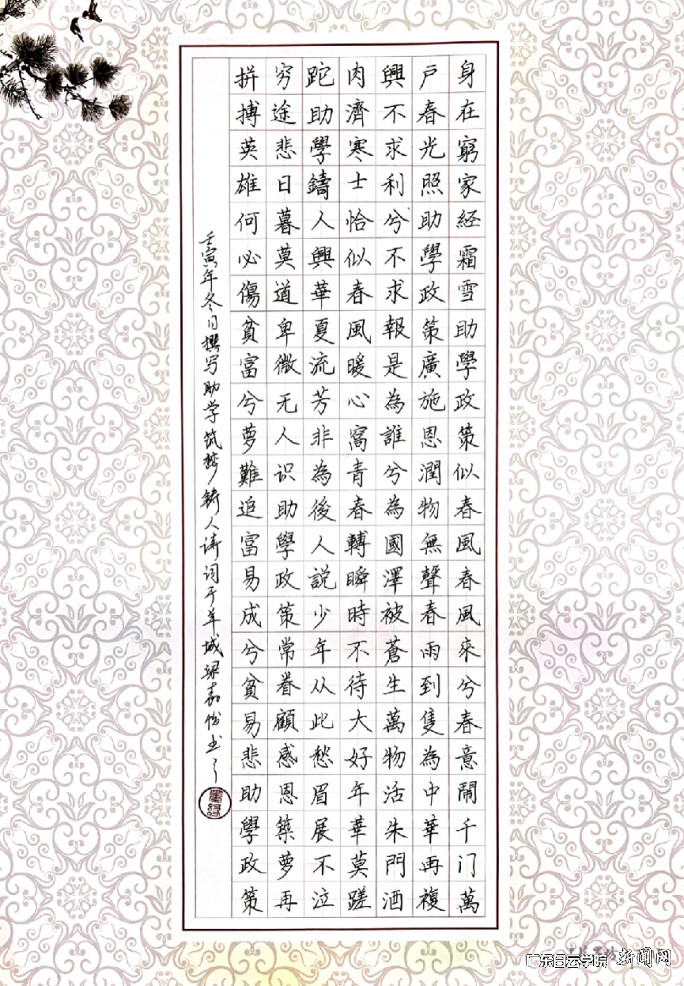 身在窮家經霜雪助學政策似春風春風來兮春意鬧千门萬
戶春光照助學政策廣施恩潤物無聲春雨到隻為中華再複
興不求利兮不求報是為誰兮為國澤被蒼生萬物活朱門酒
肉濟寒士恰似春風暖心窩青春轉瞬時不待大好年華莫蹉
跎助學鑄人興華夏流芳非為後人説少年从此愁眉展不泣
穷途悲日暮莫道卑微无人识助學政策常眷顧感恩築夢再
拼搏英雄何必傷貧富兮夢難追富易成兮貧易悲助學政策
壬寅年冬月撰写助学筑梦铸人诗词于羊城梁嘉怡书
广东白云学院 新闻网